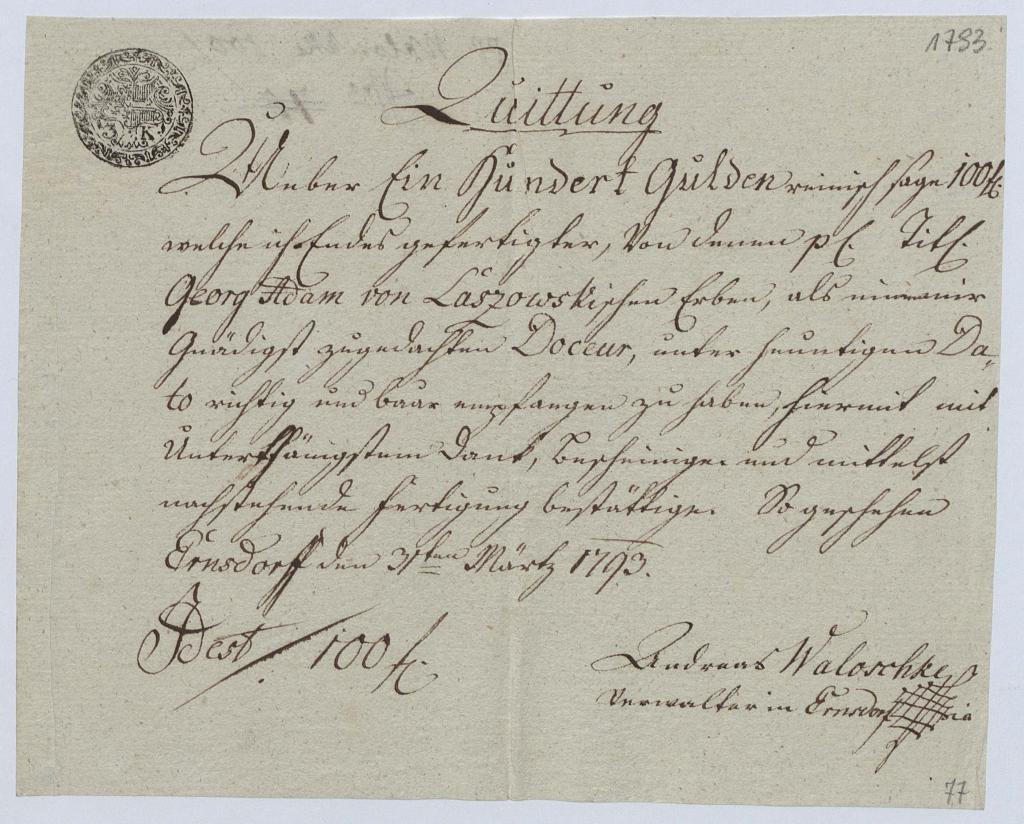 1793
3 K.
Quittung
Ueber Ein Hundert Gulden reinisch sage 100 f.
welche ich Endes gefertigter, von denen pl. Titl.
Georg Adam von Laszowskischen Erben, als
Gnädigst zugedachten Doceur, unter heuntigen Da-
to richtig und baar empfangen zu haben, hiermit mit
Unterthänigstem Dank, bescheinige und mittelst
nachstehende Fertigung bestättige. So geschehen
Ernsdorff den 31ten Märtz 1793.
Idest / 100 f.
Andreas Waloschke
Verwalter in Ernsdorf
77